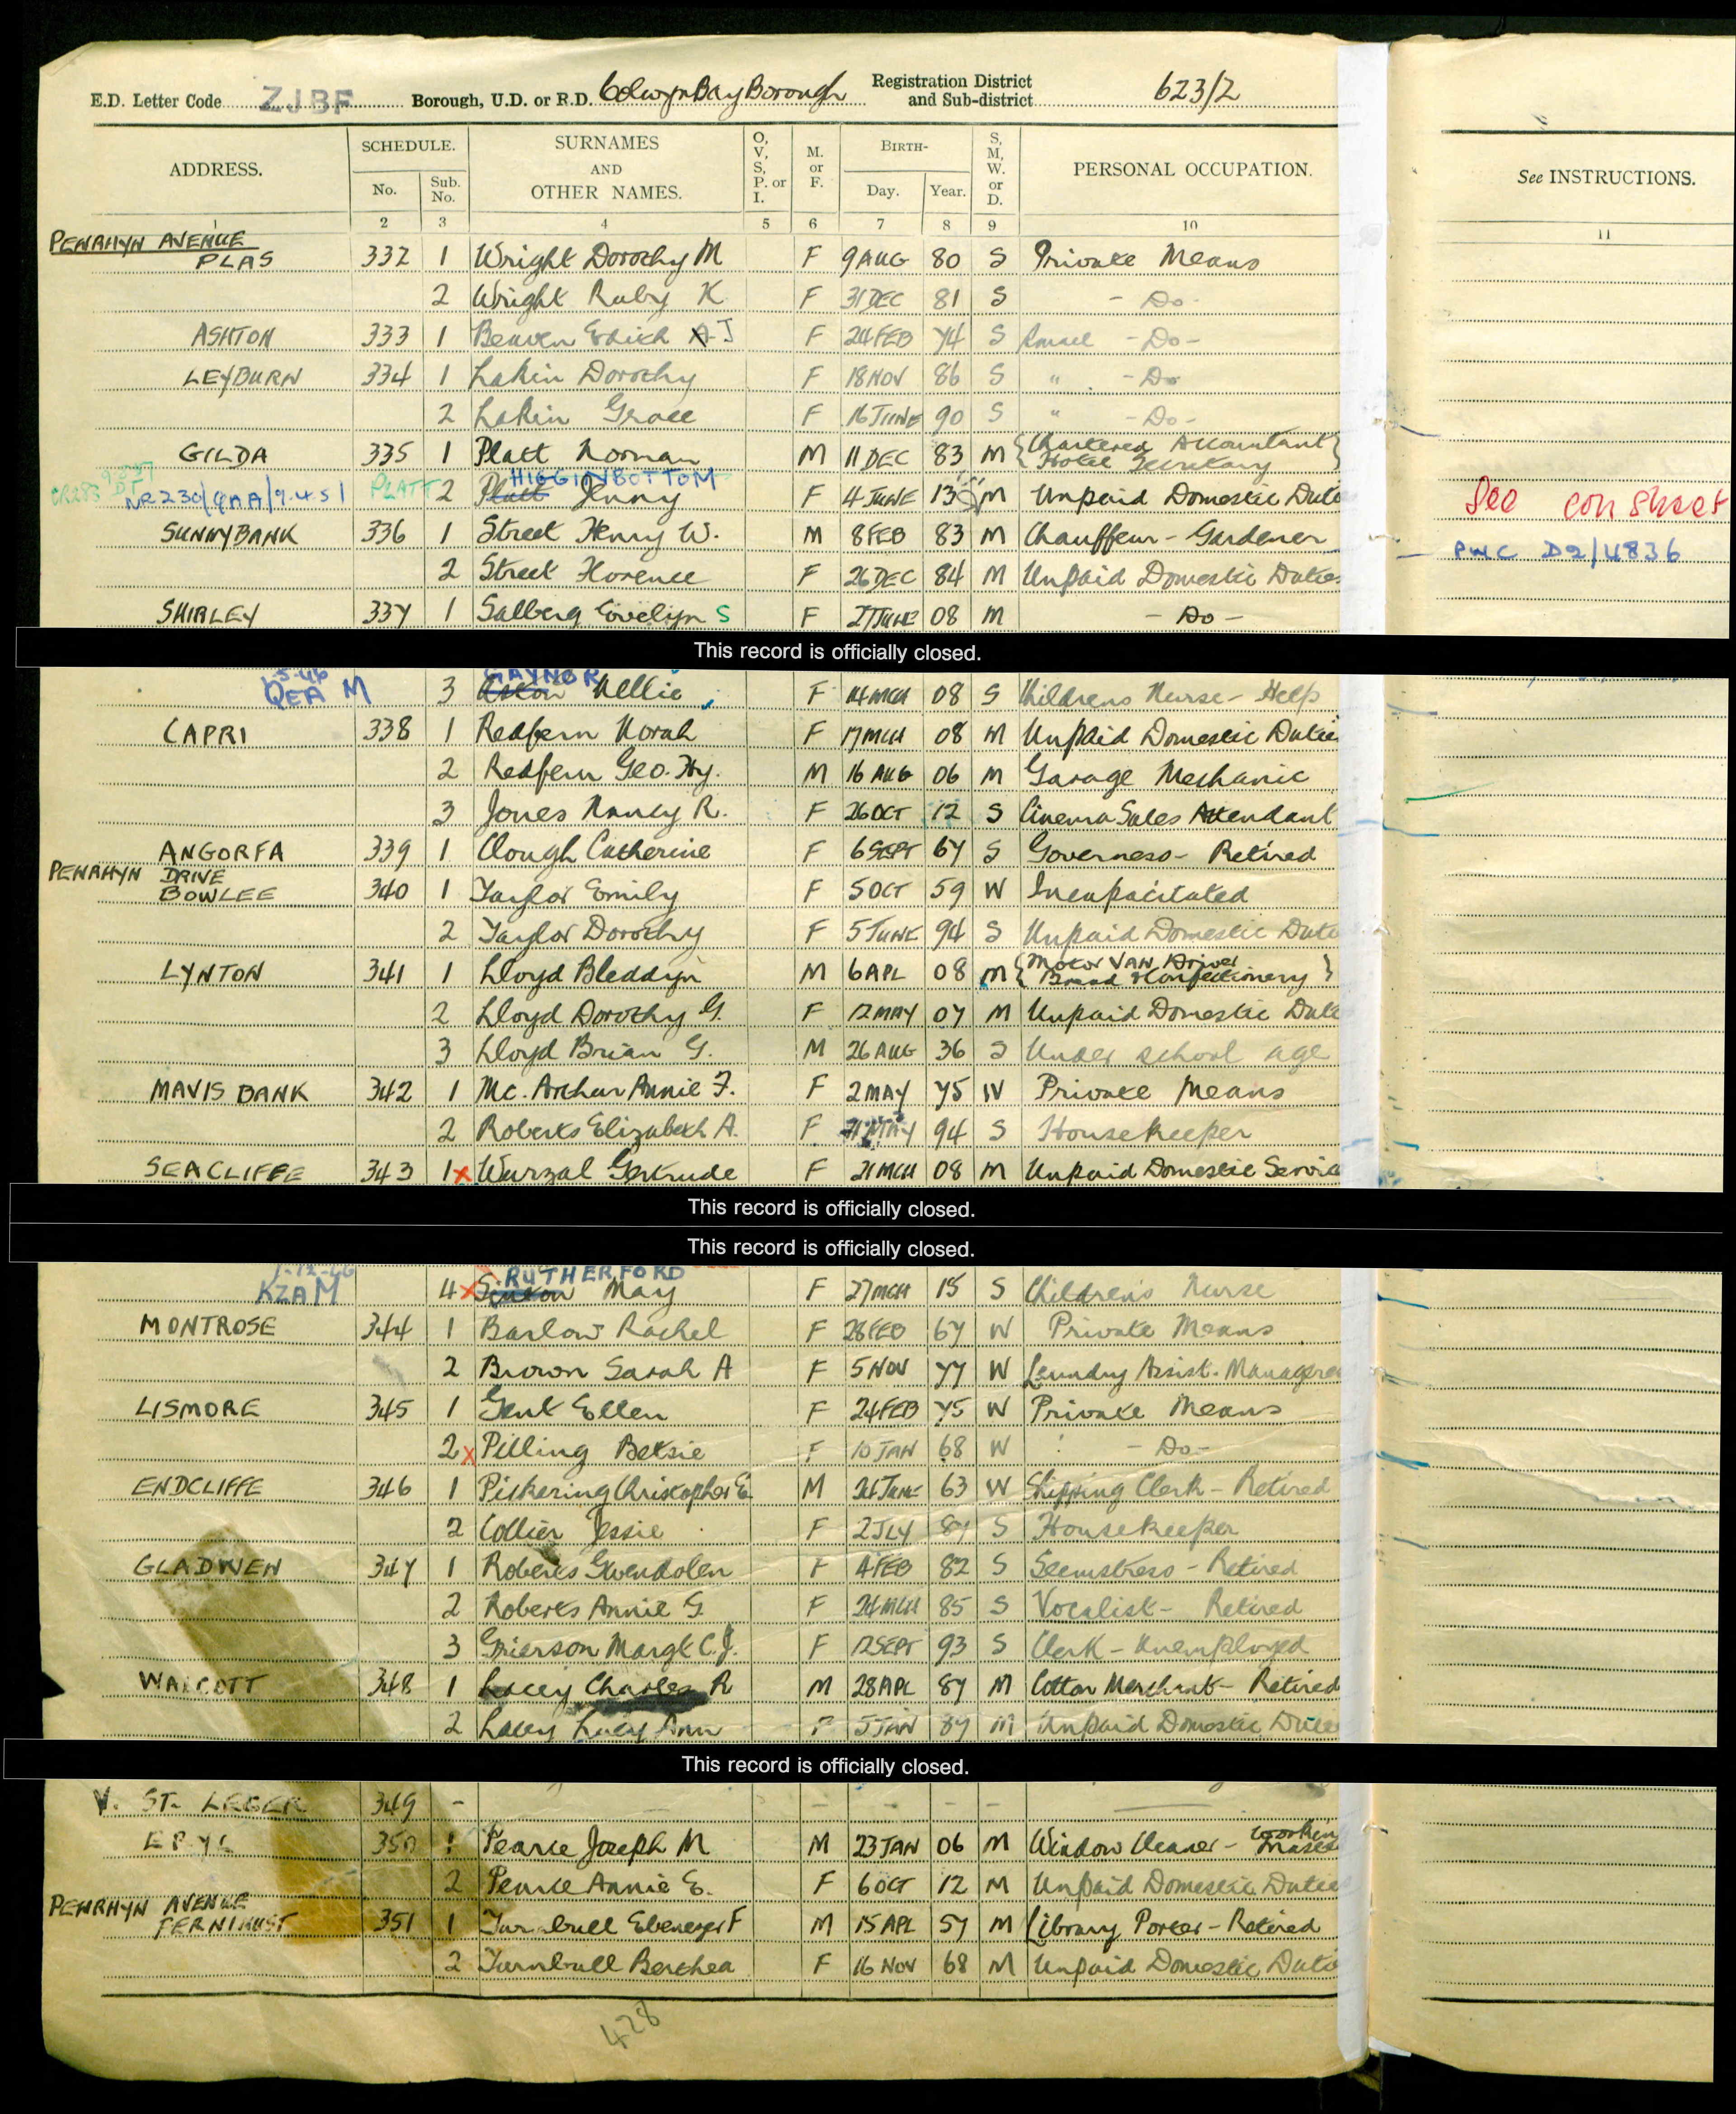 E.D. Letter Code ZJBF Borough, U.D. or R.D. Colwyn Bay Borough Registration District and Sub-district 623/2
ADDRESS. SCHEDULE. No. Sub. No. SURNAMES AND OTHER NAMES. O, V, S, P. or I. M. or F. BIRTH- Day. Year. S, M, W. or D. PERSONAL OCCUPATION. See INSTRUCTIONS.
1 2 3 4 5 6 7 8 9 10 11
PENRHYN AVENUE
PLAS 332 1 Wright Dorothy M F 9 AUG 80 S Private Means
2 Wright Ruby K F 31 DEC 81 S - Do -
ASHTON 333 1 Beaven Edith A J F 24 FEB 74 S - Do -
LEYBURN 334 1 Lakin Dorothy F 18 NOV 86 S " - Do
2 Lakin Grace F 16 JUNE 90 S " - Do -
GILDA 335 1 Platt Norman M 11 DEC 83 M { Chartered Accountant }
Hotel Secretary
HIGGINBOTTOM
NR230/QAA/9.4.51 PLATT 2 Platt Jenny F 4 JUNE 13 M Unpaid Domestic Dute See con sheet
SUNNYBANK 336 1 Street Henry W. M 8 FEB 83 M Chauffeur - Gardener PWC D2/4836
2 Street Florence F 26 DEC 84 M Unpaid Domestic Duties
SHIRLEY 337 1 Salberg Evelyn S F 27 JUNE 08 M - Do -
This record is officially closed.
1-5-46 GAYNOR
QEA M 3 Nellie F 14 MCH 08 S Childrens Nurse - Help
CAPRI 338 1 Redfern Norah F 17 MCH 08 M Unpaid Domestic Duties
2 Redfern Geo. Hy. M 16 AUG 06 M Garage Mechanic
3 Jones Nancy R. F 26 OCT 12 S Cinema Sales Attendant
ANGORFA 339 1 Clough Catherine F 6 SEPT 67 S Governess - Retired
PENRHYN DRIVE
BOWLEE 340 1 Taylor Emily F 5 OCT 59 W Incapacitated
2 Taylor Dorothy F 5 JUNE 94 S Unpaid Domestic Dute
LYNTON 341 1 Lloyd Bleddyn M 6 APL 08 M { Motor VAN Driver
Bread & Confectionery }
2 Lloyd Dorothy G. F 12 MAY 07 M Unpaid Domestic Dute
3 Lloyd Brian G. M 26 AUG 36 S Under school age
MAVIS BANK 342 1 Mc. Arthur Annie F. F 2 MAY 75 W Private Means
2 Roberts Elizabeth A. F MAY 94 S Housekeeper
SEACLIFFE 343 1 x Wurzal Gertrude F 21 MCH 08 M Unpaid Domestic Servic
This record is officially closed.
This record is officially closed.
RUTHERFORD
KZA M 4 x May F 27 MCH 15 S Childrens Nurse
MONTROSE 344 1 Barlow Rachel F 28 FEB 67 W Private Means
2 Brown Sarah A F 5 NOV 77 W Laundry Assist. Manageres
LISMORE 345 1 Gent Ellen F 24 FEB 75 W Private Means
2 x Pilling Betsie F 10 JAN 68 W - Do -
ENDCLIFFE 346 1 Pickering Christopher E. M 24 JUNE 63 W Shipping Clerk - Retired
2 Collier Jessie F 2 JLY S Housekeeper
GLADWEN 347 1 Roberts Gwendolen F 4 FEB 82 S Seemstress - Retired
2 Roberts Annie G. F 24 MCH 85 S Vocalist - Retired
3 Grierson Margt C. J. F 12 SEPT 93 S Clerk - Unemployed
WALCOTT 348 1 Lacey Charles R M 28 APL 87 M Cotton Merchant - Retired
2 Lacey Lucy Ann F 5 JAN 87 M Unpaid Domestic Dutie
This record is officially closed.
V. ST. LEGER 349 - - - - -
350 1 Pearce Joseph M M 23 JAN 06 M Window Cleaner - working
2 Pearce Annie E. F 6 OCT 12 M Unpaid Domestic Duties
PENRHYN AVENUE
351 1 Turnbull Ebenezer F M 15 APL 57 M Library Porter - Retired
2 Turnbull Berthea F 16 NOV 68 M Unpaid Domestic Dutie
428